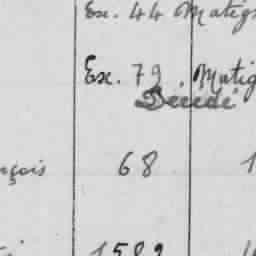 Ex. 44 Matig
Ex. 79. Matig
Décédé
nçois 68 1
1589